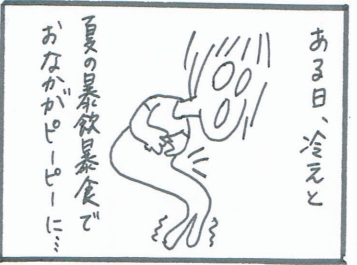 ある日、冷えと
夏の暴飲暴食で
おなかがピーピーに…